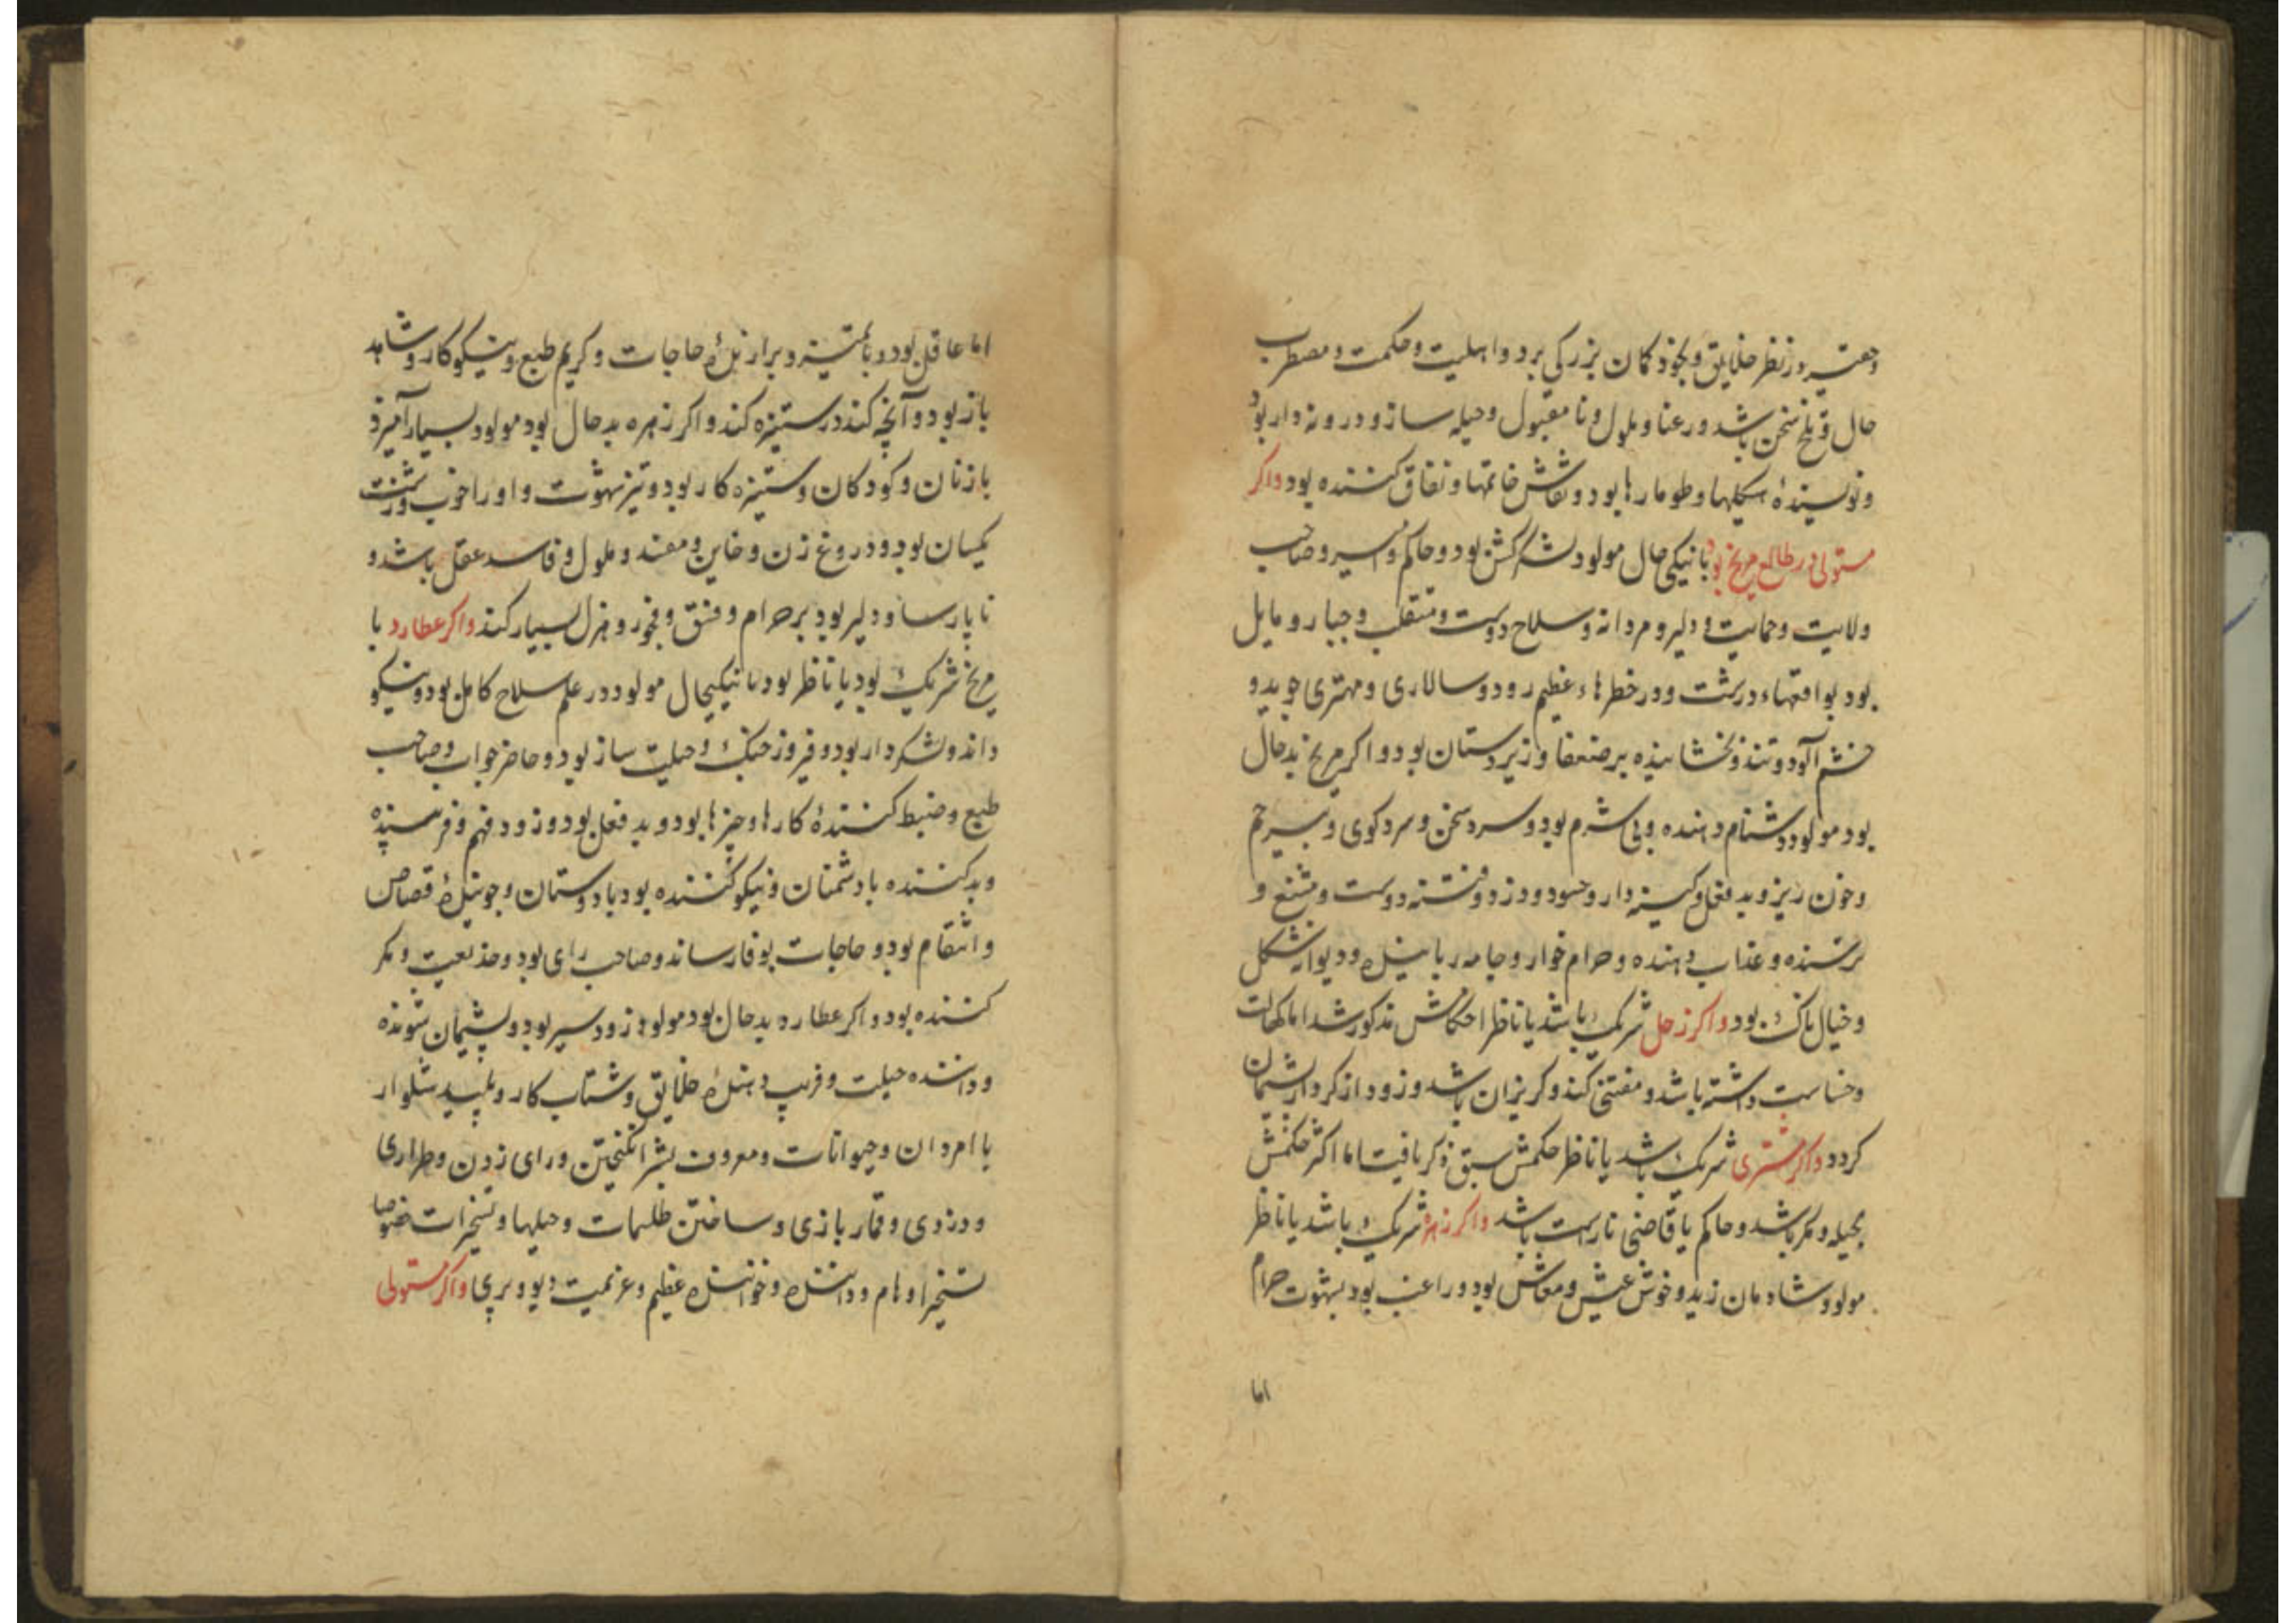 وحقیر در نظر خلایق و بخود کمان بزرکی برد و اهلیت و حکمت و مضطرب
حال و تلخ سخن باشد و رعنا و ملول و نا مقبول و حیله ساز و دروغ دار بود
و نویسندهٔ هیکلها و طومارها بود و نقاش خاتمها و نفاق کننده بود واکر
مستولی در طالع مریخ بود با نیکی حال مولود لشکرکش بود و حاکم و امیر و صاحب
ولایت و حمایت و دلیر و مردانه و سلاح دوست و متقلب و جبار و مایل
بود بواقعهاء درشت و در خطرهاء عظیم رود و سالاری و مهتری جوید و
خشم آلود و تند و بخشاینده بر ضعفا و زیردستان بود و اکر مریخ بدحال
بود مولود دشنام دهنده و بی شرم بود و سرد سخن و سرد کوی و بیرحم
و خون ریز و بد فعل و کینه دار و حسود و دزد و فتنه دوست و مشنع و
ترسنده و عذاب دهنده و حرام خوار و جامه رباینده و دیوانه شکل
و خیال ناک بود واکر زحل شریک باشد یا ناظر احکامش مذکور شد اما کهالت
و خساست داشته باشد و مفتنی کند و کریزان باشد و زود از کردار پشیمان
کردد واکر مشتری شریک باشد یا ناظر حکمش سبق ذکر یافت اما اکثر حکمش
بحیله و مکر باشد و حاکم یا قاضی ناراست باشد واکر زهره شریک باشد یا ناظر
مولود شادمان زید و خوش عیش و معاش بود و راغب بود بشهوت حرام
اما
اما عاقل بود و با تمیز و برارندهٔ حاجات و کریم طبع و نیکوکار و شاهد
باز بود و آنچه کند در ستیزه کند و اکر زهره بدحال بود مولود بسیار آمیزد
با زنان و کودکان و ستیزه کار بود و تیز شهوت و او را خوب و زشت
یکسان بود و دروغ زن و خاین و مفسد و ملول و فاسد عقل باشد و
نا پارسا و دلیر بود بر حرام و فسق و فجور و هزل بسیار کند واکر عطارد با
مریخ شریک بود یا ناظر بود با نیکی حال مولود در علم سلاح کامل بود و نیکو
داند و لشکردار بود و فیروز جنک و حیلت ساز بود و حاضر جواب و صاحب
طبع و ضبط کنندهٔ کارها و چیزها بود و بد فعل بود و زود فهم و فریبنده
و بد کننده با دشمنان و نیکو کننده بود با دوستان و جویندهٔ قصاص
و انتقام بود و حاجات بوفا رساند و صاحب رای بود و خدیعت و مکر
کننده بود و اکر عطارد بدحال بود مولود زود سیر بود و پشیمان شونده
و داننده حیلت و فریب دهندهٔ خلایق و شتاب کار و پلید شلوار
با امردان و حیوانات و معروف بشر انکیختن و رای زدن و طراری
و دزدی و قمار بازی و ساختن طلسمات و حیلها و تسخیرات خصوصا
تسخیر اوهام و داننده و خواننده عظیم و عزیمت دیو و پری واکر مستولی